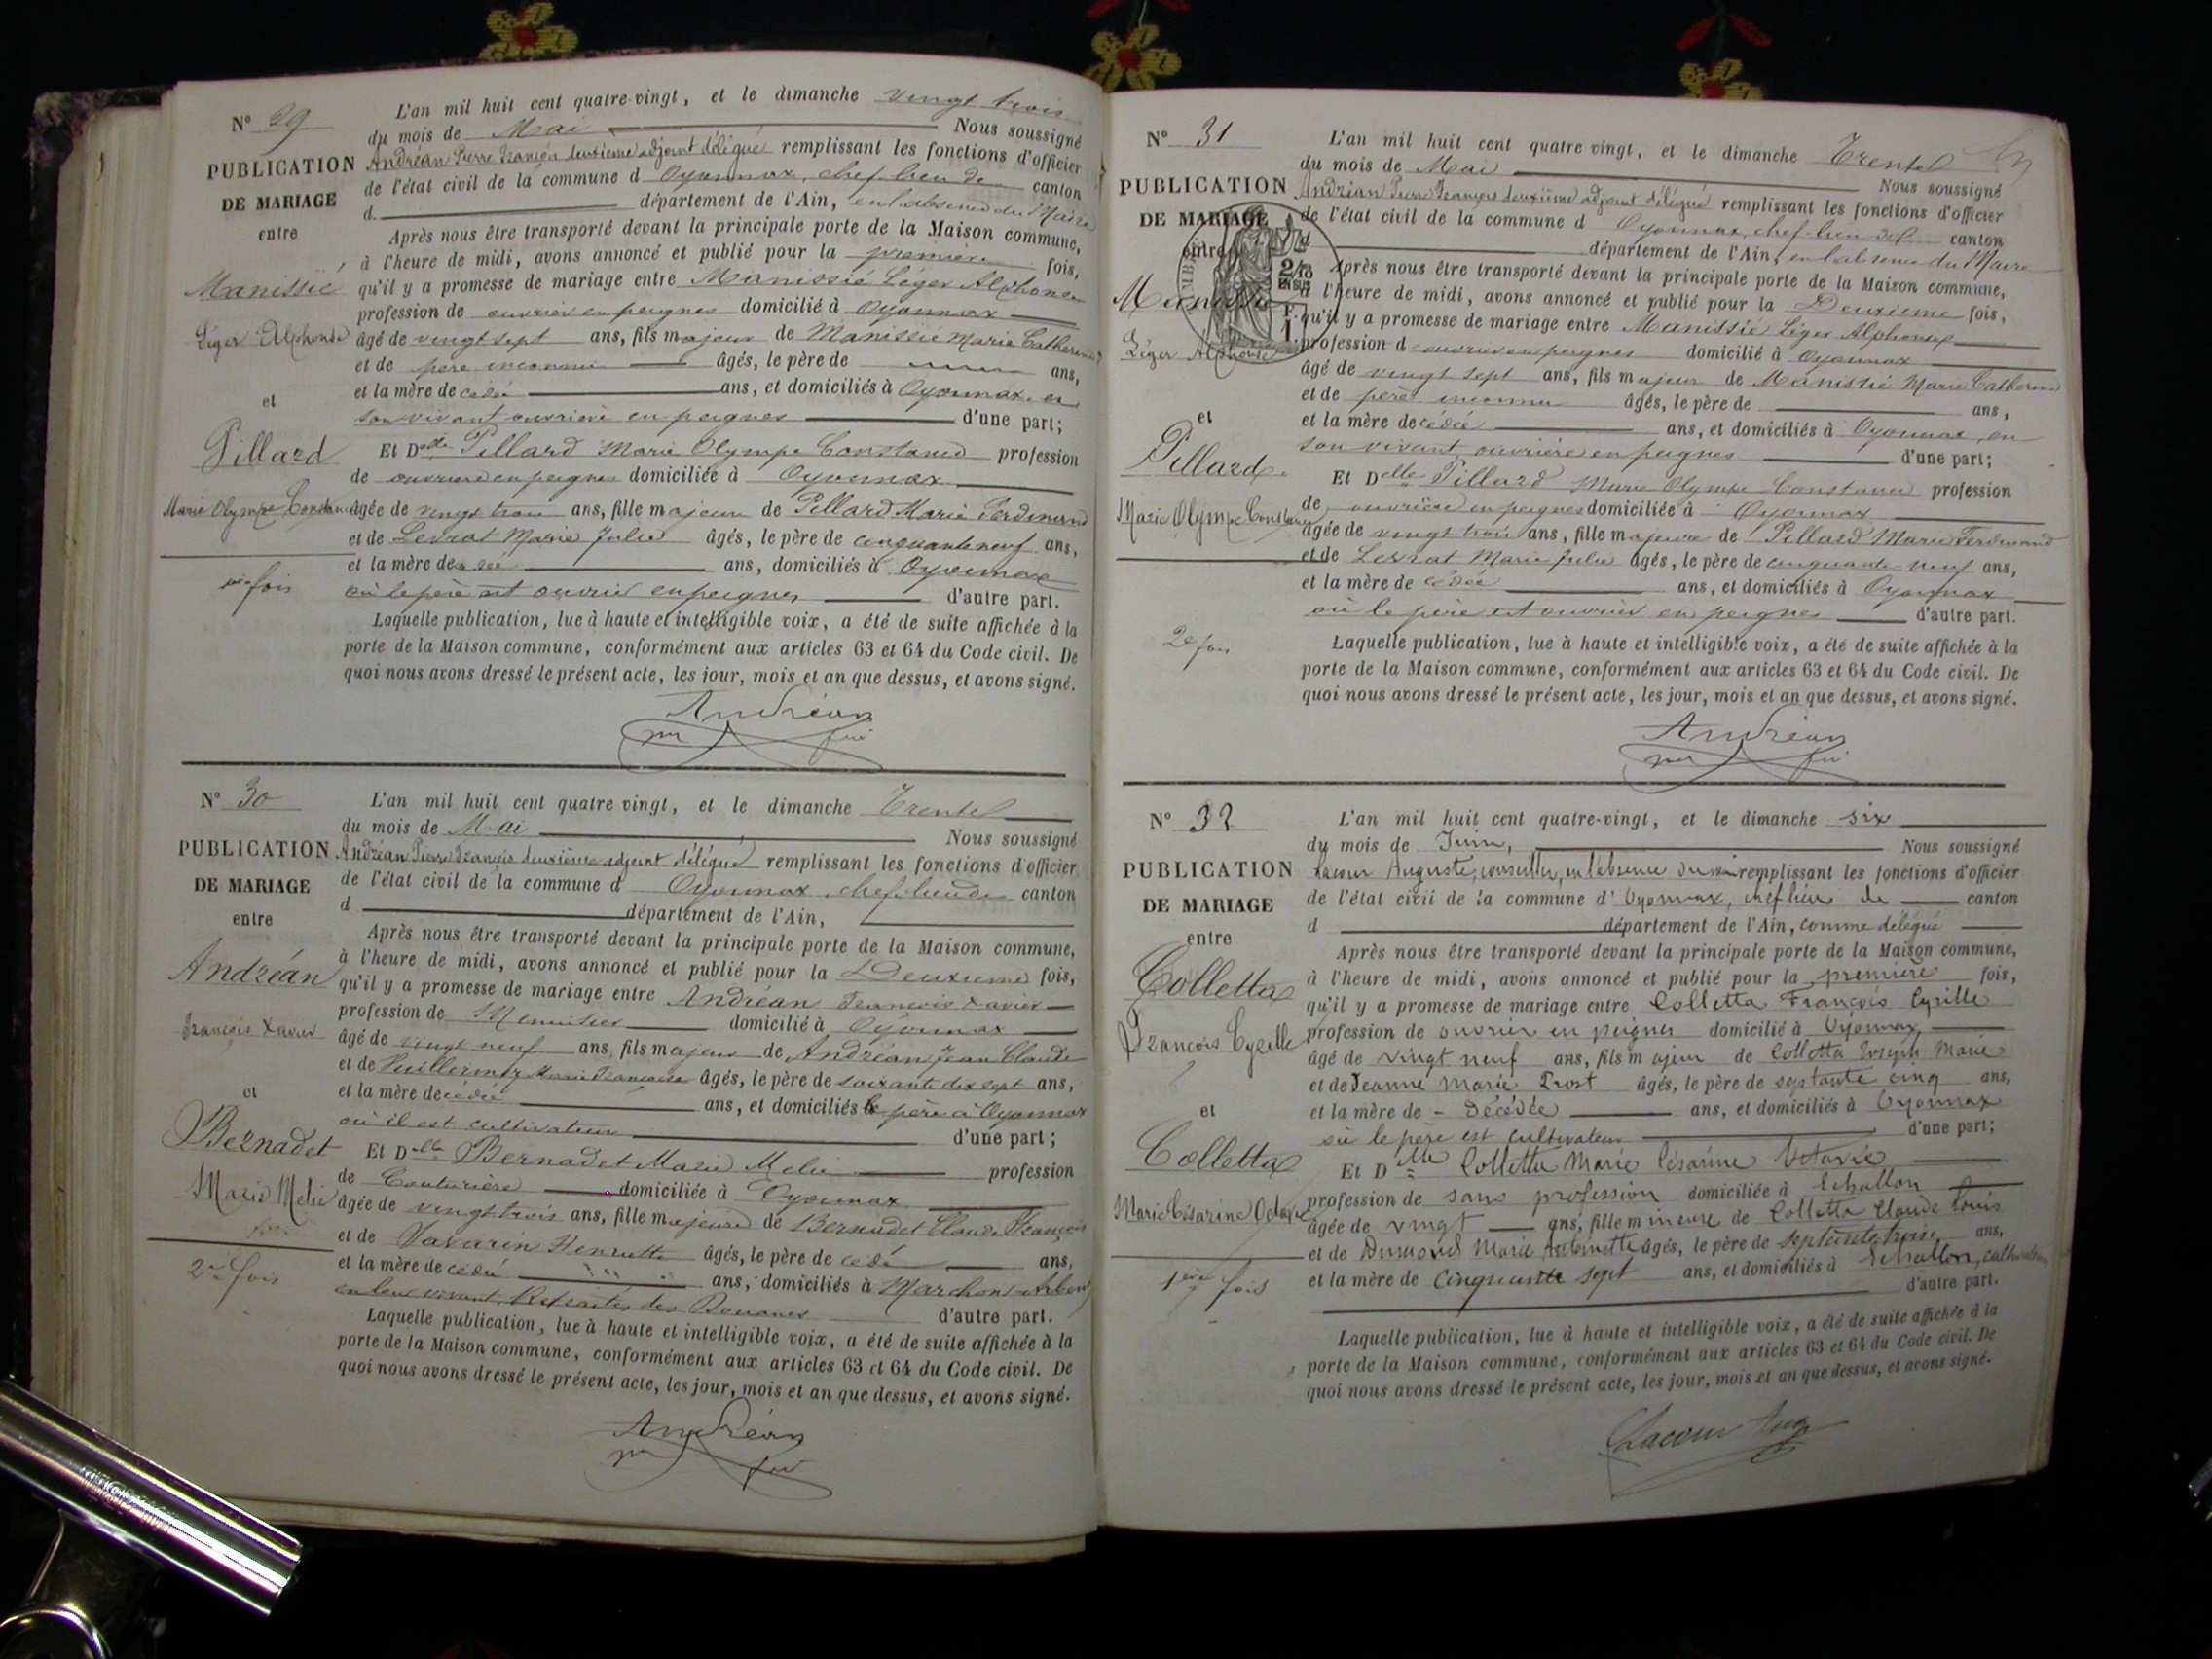 N° 29
PUBLICATION
DE MARIAGE
entre
Manissié
Léger Alphonse
et
Pillard
Marie Olympe Constance
1ère fois
L'an mil huit cent quatre-vingt, et le dimanche vingt trois
du mois de Mai Nous soussigné
Andréan Pierre François deuxième adjoint délégué remplissant les fonctions d'officier
de l'état civil de la commune d Oyonnax, chef-lieu de canton
d département de l'Ain, en l'absence du Maire
Après nous être transporté devant la principale porte de la Maison commune,
à l'heure de midi, avons annoncé et publié pour la première fois,
qu'il y a promesse de mariage entre Manissié Léger Alphonse
profession de ouvrier en peignes domicilié à Oyonnax
âgé de vingt sept ans, fils majeur de Manissié Marie Catherine
et de père inconnu âgés, le père de ans,
et la mère decédée ans, et domiciliés à Oyonnax, en
son vivant ouvrière en peignes d'une part;
Et Delle Pillard Marie Olympe Constance profession
de ouvrière en peignes domiciliée à Oyonnax
âgée de vingt trois ans, fille majeure de Pillard Marie Ferdinand
et de Levrat Marie Julie âgés, le père de cinquante neuf ans,
et la mère decédée ans, domiciliés à Oyonnax
où le père est ouvrier en peignes d'autre part.
Laquelle publication, lue à haute et intelligible voix, a été de suite affichée à la
porte de la Maison commune, conformément aux articles 63 et 64 du Code civil. De
quoi nous avons dressé le présent acte, les jour, mois et an que dessus, et avons signé.
Andréan
N° 30
PUBLICATION
DE MARIAGE
entre
Andréan
François Xavier
et
Bernadet
Marie Melie
2me fois
L'an mil huit cent quatre vingt, et le dimanche Trente
du mois de Mai Nous soussigné
Andréan Pierre François deuxième adjoint délégué remplissant les fonctions d'officier
de l'état civil de la commune d Oyonnax, chef-lieu de canton
d département de l'Ain,
Après nous être transporté devant la principale porte de la Maison commune,
à l'heure de midi, avons annoncé et publié pour la Deuxième fois,
qu'il y a promesse de mariage entre Andréan François Xavier
profession de Menuisier domicilié à Oyonnax
âgé de vingt neuf ans, fils majeur de Andréan Jean Claude
et de Vuillermoz Marie Françoise âgés, le père de soixante dix sept ans,
et la mère decédée ans, et domiciliés le père à Oyonnax
où il est cultivateur d'une part;
Et Delle Bernadet Marie Melie profession
de Couturière domiciliée à Oyonnax
âgée de vingt trois ans, fille majeure de Bernadet Claude François
et de Savarin Henriette âgés, le père decédé ans,
et la mère decédée ans, domiciliés à Marchon-Arbent
en leur vivant Retraités des Douanes d'autre part.
Laquelle publication, lue à haute et intelligible voix, a été de suite affichée à la
porte de la Maison commune, conformément aux articles 63 et 64 du Code civil. De
quoi nous avons dressé le présent acte, les jour, mois et an que dessus, et avons signé.
Andréan
N° 31
PUBLICATION
DE MARIAGE
entre
Manissié
Léger Alphonse
et
Pillard
Marie Olympe Constance
2e fois
L'an mil huit cent quatre vingt, et le dimanche Trente
du mois de Mai Nous soussigné
Andréan Pierre François deuxième adjoint délégué remplissant les fonctions d'officier
de l'état civil de la commune d Oyonnax, chef-lieu de canton
d département de l'Ain, en l'absence du Maire
Après nous être transporté devant la principale porte de la Maison commune,
à l'heure de midi, avons annoncé et publié pour la Deuxième fois,
qu'il y a promesse de mariage entre Manissié Léger Alphonse
profession d ouvrier en peignes domicilié à Oyonnax
âgé de vingt sept ans, fils majeur de Manissié Marie Catherine
et de père inconnu âgés, le père de ans,
et la mère decédée ans, et domiciliés à Oyonnax, en
son vivant ouvrière en peignes d'une part;
Et Delle Pillard Marie Olympe Constance profession
de ouvrière en peignes domiciliée à Oyonnax
âgée de vingt trois ans, fille majeure de Pillard Marie Ferdinand
et de Levrat Marie Julie âgés, le père de cinquante neuf ans,
et la mère decédée ans, et domiciliés à Oyonnax
où le père est ouvrier en peignes d'autre part.
Laquelle publication, lue à haute et intelligible voix, a été de suite affichée à la
porte de la Maison commune, conformément aux articles 63 et 64 du Code civil. De
quoi nous avons dressé le présent acte, les jour, mois et an que dessus, et avons signé.
Andréan
N° 32
PUBLICATION
DE MARIAGE
entre
Colletta
François Cyrille
et
Colletta
Marie Césarine Octavie
1ère fois
L'an mil huit cent quatre-vingt, et le dimanche six
du mois de Juin, Nous soussigné
Lacour Auguste, conseiller, en l'absence du maire remplissant les fonctions d'officier
de l'état civil de la commune d' Oyonnax, chef lieu de canton
d département de l'Ain, comme délégué
Après nous être transporté devant la principale porte de la Maison commune,
à l'heure de midi, avons annoncé et publié pour la première fois,
qu'il y a promesse de mariage entre Colletta François Cyrille
profession de ouvrier en peignes domicilié à Oyonnax
âgé de vingt neuf ans, fils majeur de Colletta Joseph Marie
et de Jeanne Marie Prost âgés, le père de septante cinq ans,
et la mère de - Décédée ans, et domiciliés à Oyonnax
où le père est cultivateur d'une part;
Et Delle Colletta Marie Césarine Octavie
profession de sans profession domiciliée à Echallon
âgée de vingt ans, fille mineure de Colletta Claude Louis
et de Dumond Marie Antoinette âgés, le père de septante trois ans,
et la mère de Cinquante sept ans, et domiciliés à Echallon, cultivateurs
d'autre part.
Laquelle publication, lue à haute et intelligible voix, a été de suite affichée à la
porte de la Maison commune, conformément aux articles 63 et 64 du Code civil. De
quoi nous avons dressé le présent acte, les jour, mois et an que dessus, et avons signé.
Lacour Aug